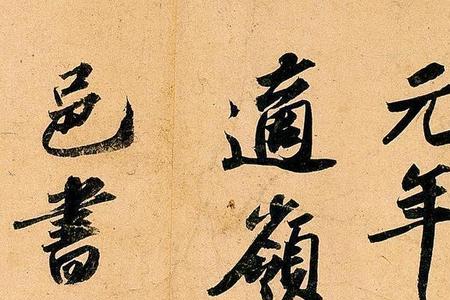 元年
適嶺
邑書